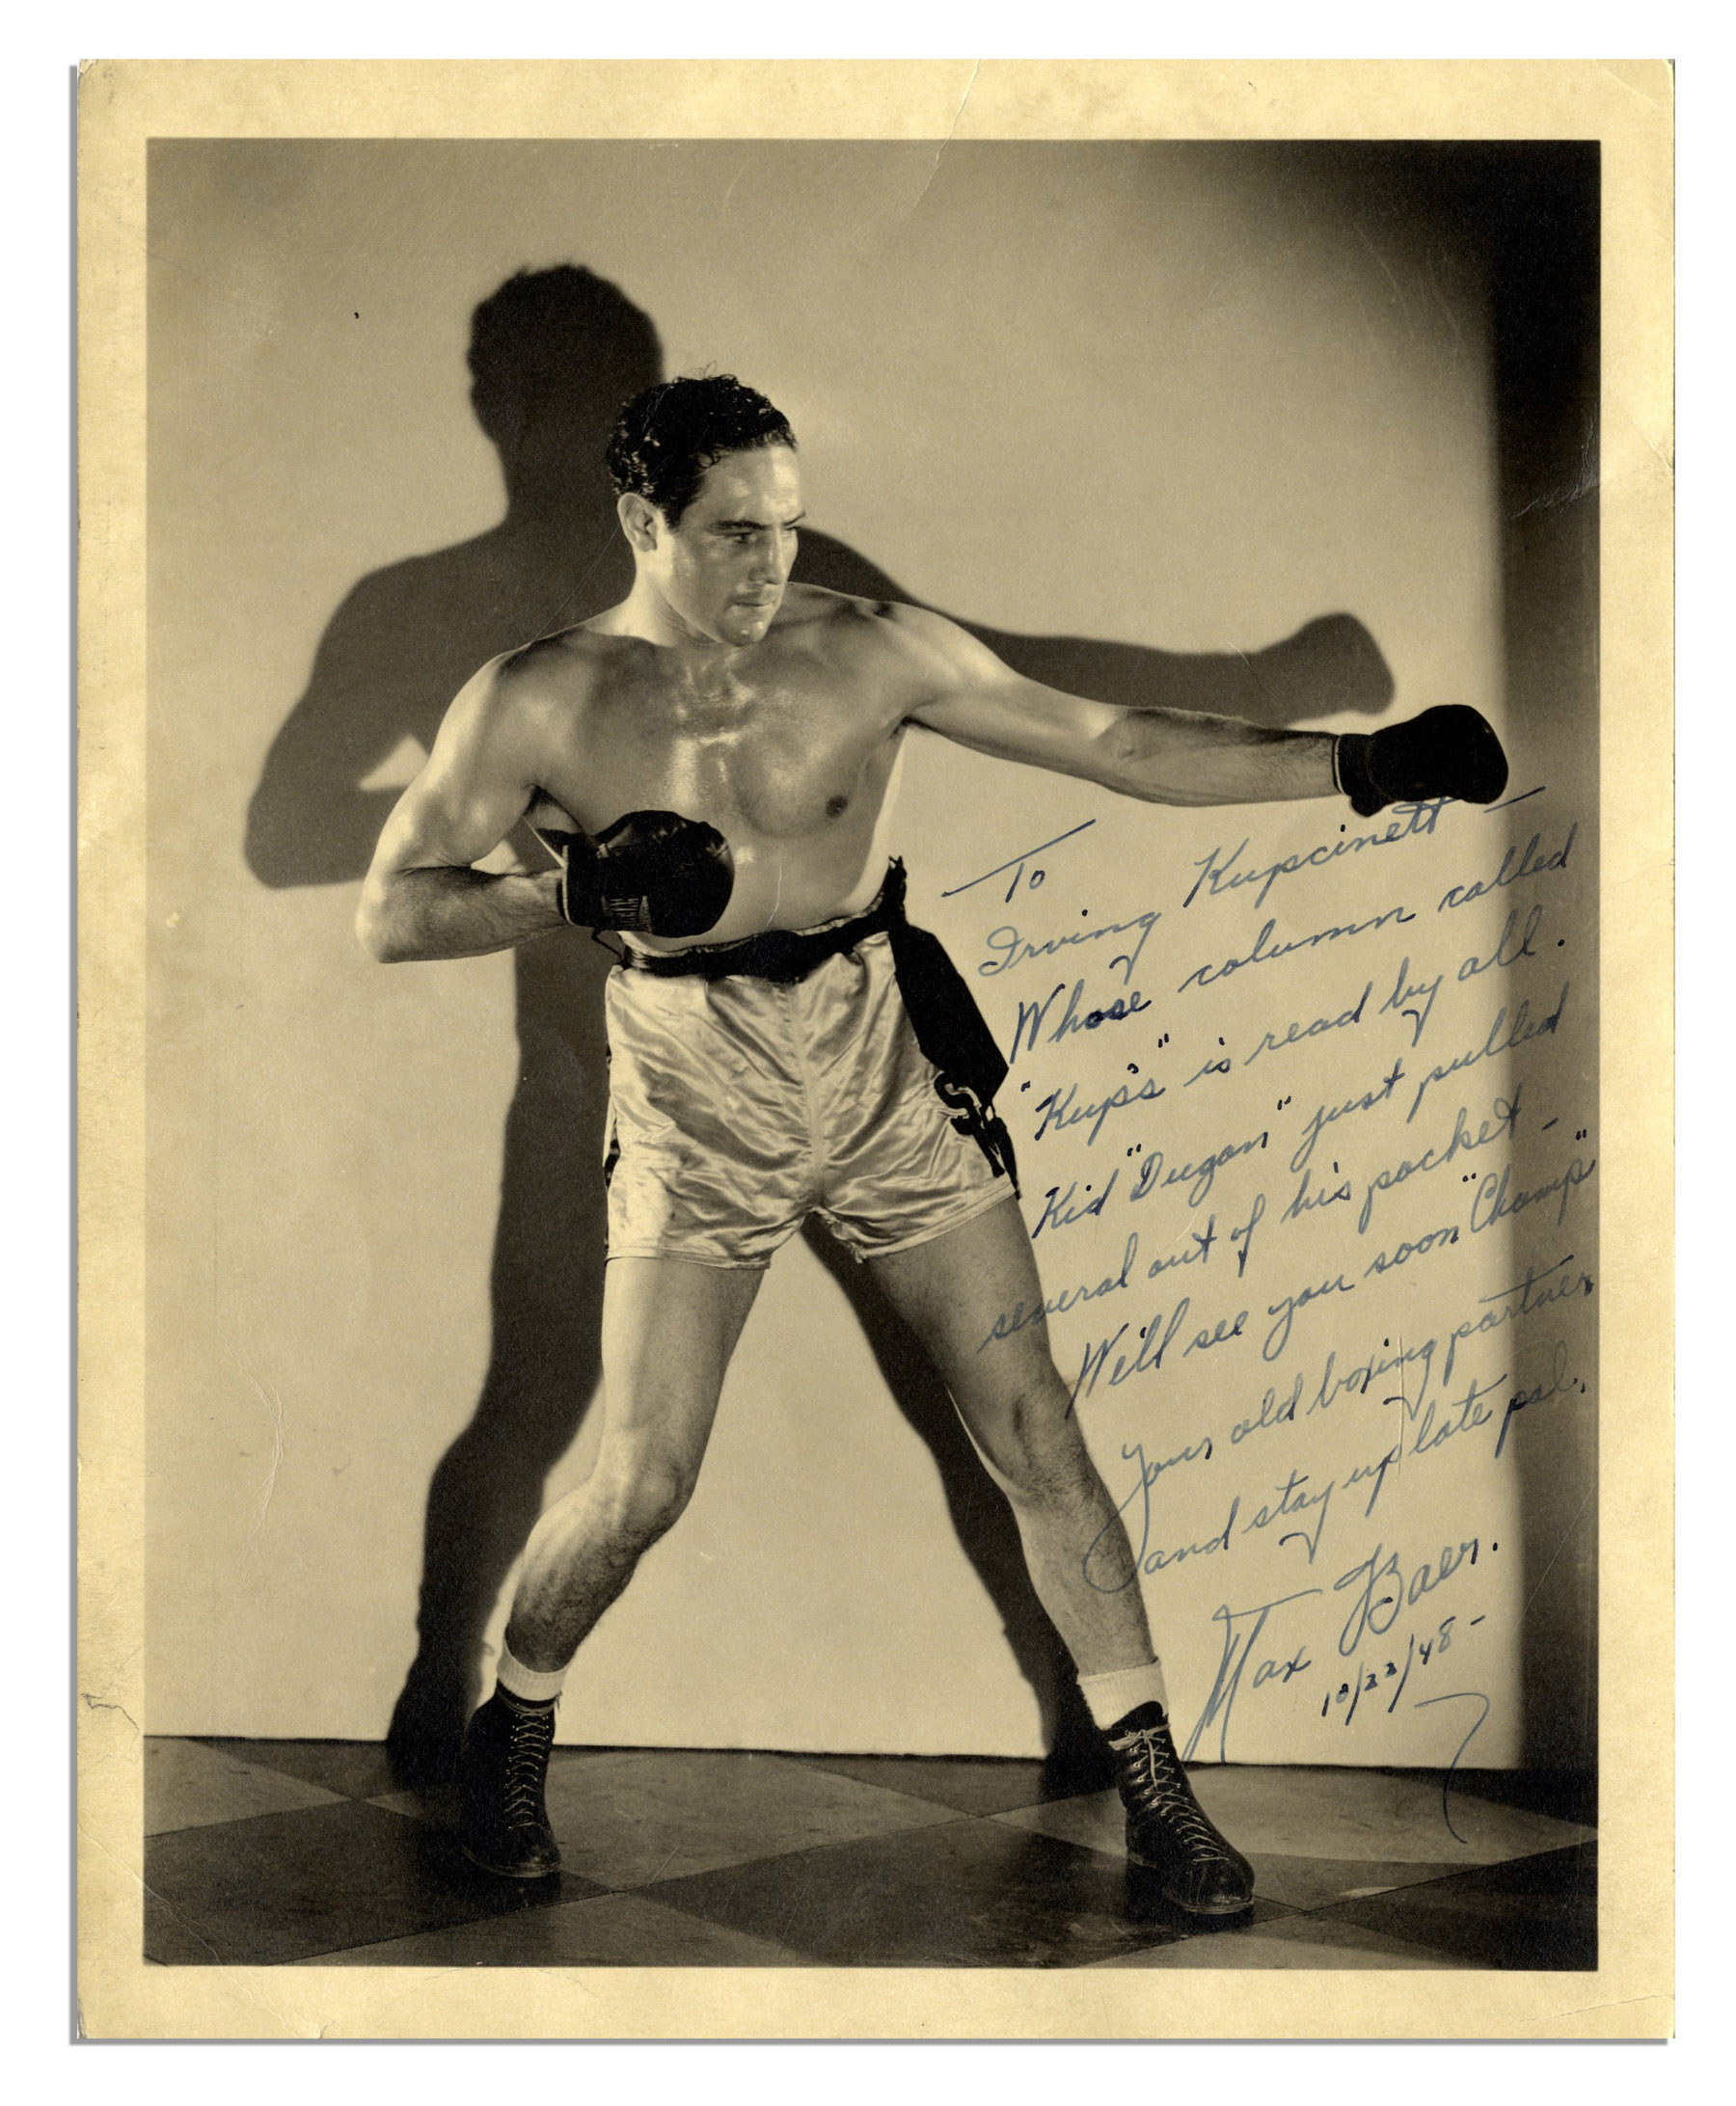 To
Irving Kupcinett —
Whose column called
"Kup's" is read by all.
Kid "Dugan" just pulled
several out of his pocket —
Will see you soon "Champ"
Your old boxing partner
and stay up late pal.
Max Baer.
10/22/48 —